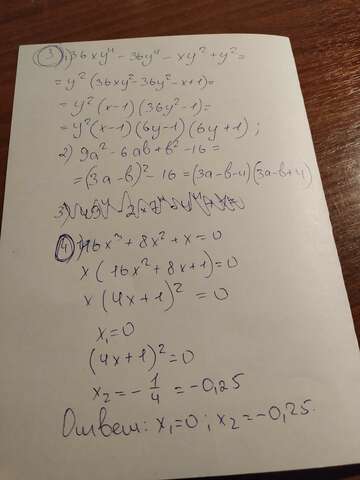 3) 1) 36xy⁴ - 36y⁴ - xy² + y² =
= y² (36xy² - 36y² - x + 1) =
= y² (x-1) (36y² - 1) =
= y² (x-1) (6y-1) (6y+1) ;
2) 9a² - 6ab + b² - 16 =
= (3a - b)² - 16 = (3a-b-4) (3a-b+4)
3)
4) 16x³ + 8x² + x = 0
x (16x² + 8x + 1) = 0
x (4x + 1)² = 0
x₁ = 0
(4x+1)² = 0
x₂ = - 1/4 = -0,25
Ответ: x₁ = 0 ; x₂ = -0,25.